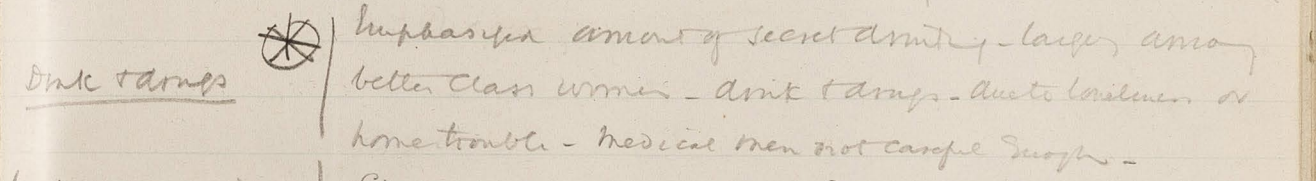 Drink & drugs
Emphasised amount of secret drinking - largely among
better class women - drink & drugs - due to loneliness or
home trouble - Medical men not careful enough -